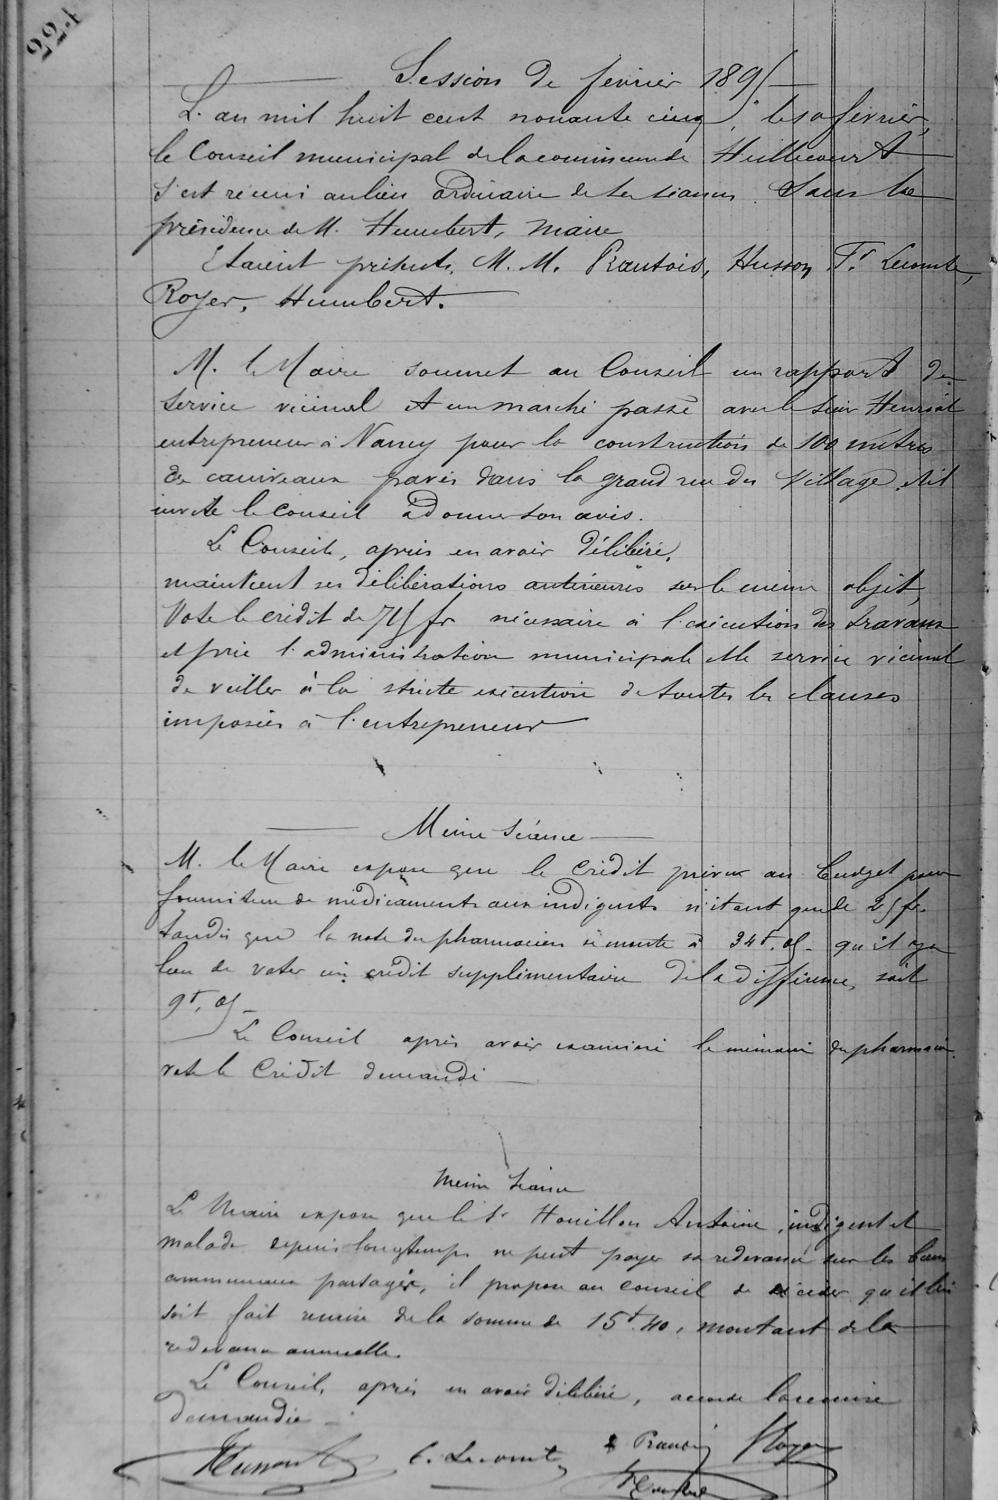 224
Session de février 1895
L'an mil huit cent nonante cinq, le 10 février,
le Conseil municipal de la commune de Huilliécourt
s'est réuni au lieu ordinaire de ses séances sous la
présidence de M. Humbert, maire
Etaient présents, M. M. Prautois, Husson, Fr Lecomte,
Royer, Humbert.
M. le Maire soumet au Conseil un rapport du
service vicinal et un marché passé avec le sieur Henriot
entrepreneur à Nancy pour la construction de 100 mètres
de caniveaux pavés dans la grand rue du Village. Il
invite le Conseil à donner son avis.
Le Conseil, après en avoir délibéré,
maintient ses délibérations antérieures sur le même objet,
Vote le crédit de 715 fr nécessaire à l'exécution des travaux
et prie l'administration municipale et le service vicinal
de veiller à la stricte exécution de toutes les clauses
imposées à l'entrepreneur
Même séance
M. le Maire expose que le crédit prévu au budget pour
fourniture de médicaments aux indigents n'étant que de 25 fr.
tandis que la note du pharmacien se monte à 34f.05 qu'il y a
lieu de voter un crédit supplémentaire de la différence, soit
9f,05
Le Conseil après avoir examiné le mémoire du pharmacien
vote le Crédit demandé
Même séance
Le Maire expose que le Sr Houillon Antoine, indigent et
malade depuis longtemps ne peut payer sa redevance sur les biens
communaux partagés, il propose au Conseil de décider qu'il lui
soit fait remise de la somme de 15f.40, montant de la
redevance annuelle.
Le Conseil, après en avoir délibéré, accorde la remise
demandée
Husson C. Lecomte Royer